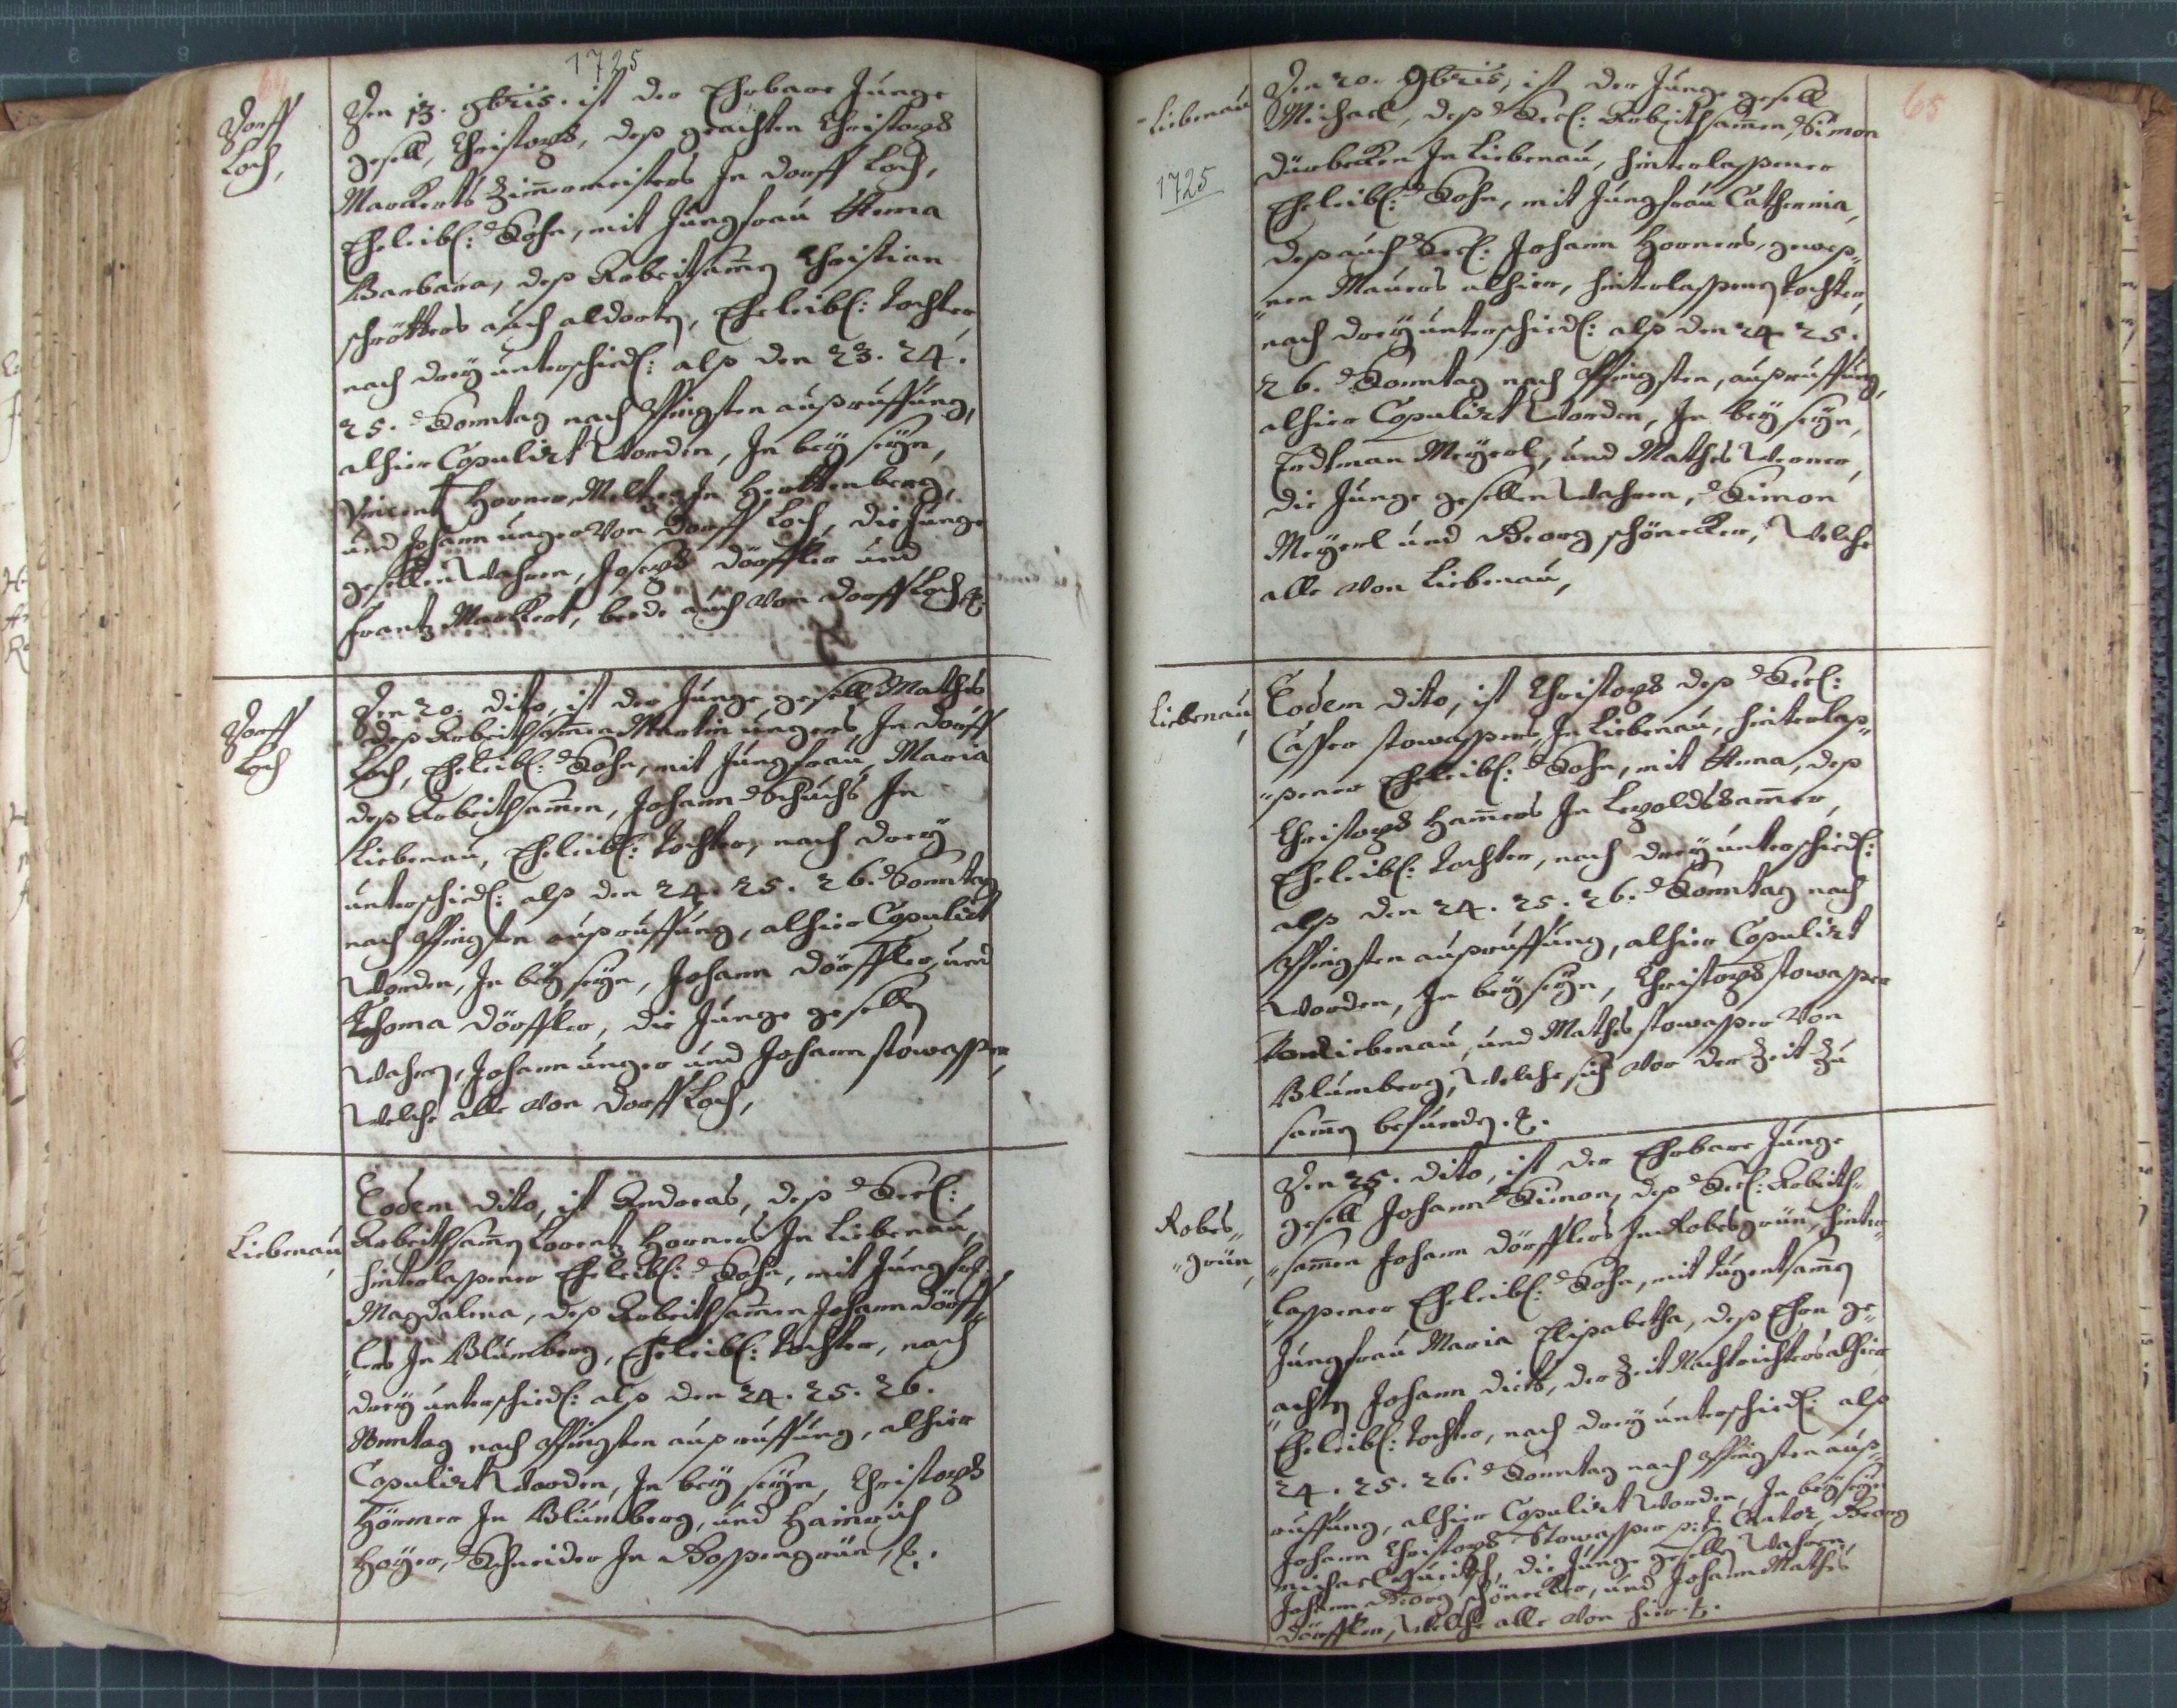 64
1725
Dorff
Loch,
Den 13. 9bris. ist der Ehrbare Junge
gesell, Christoph, deß geachten Christoph
Markerts Zimermeisters In dorff Loch,
Eheleibl: Sohn, mit Jungfrau Anna
Barbara, deß Arbeitsamen Christian
schrötters auch aldorten, Eheleibl: tochter,
nach drey unterschiedl: alß den 23. 24.
25. Sonntag nach Pfingsten außruffung,
alhier Copulirt worden, In bey seyn,
Vincent Horner, In
und Johann unger von Dorff Loch, die Junge
gesellen wahren, Joseph Dörffler und
Frantz Markert, beede auch von dorff Loch &.
Dorff
Loch
Den 20. dito, ist der Junge gesell Mathes
deß Arbeithsamen Martin ungers, In dorff
Loch, Eheleibl: Sohn, mit Jungfrau, Maria
deß Arbeithsamen, Johann Schuchs In
Liebenau, Eheleibl: tochter, nach drey
unterschiedl: alß den 24. 25. 26. Sonntag
nach Pfingsten außruffung, alhier Copulirt
worden, In bey seyn, Johann Dörffler, und
Thoma Dörffler, die Junge gesellen
wahren, Johann unger und Johann stowasser,
welche alle von dorff Loch,
Liebenau,
Eodem dito, ist Andreas, deß Seel:
Arbeithsamen Lorentz Horners In Liebenau,
hinterlassener Eheleibl: Sohn, mit Jungfr:
Magdalena, deß Arbeithsamen Johann Dörff„
„lers In Blumberg, Eheleibl: tochter, nach
drey unterschiedl: alß den 24. 25. 26.
Sonntag nach Pfingsten außruffung, alhier
Copulirt worden, In bey seyn, Christoph
Hörner In Blumberg, und Hainrich
Hoyer, Schneider In Possengrün, &.
65
Liebenau
1725
Den 20. 9bris, ist der Junge gesell
Michael, deß Seel: Arbeithsamen, Simon
Dürbecken In Liebenau, hinterlassener
Eheleibl: Sohn, mit Jungfrau Catherina,
deß auch Seel: Johann Horners, geweß„
„nen Maurers alhier, hinterlassenen tochter,
nach drey unterschiedl: alß den 24 25.
26. Sonntag nach Pfingsten, außruffung,
alhier Copulirt worden, In bey seyn,
Erdtman Meyerl, und Mathes Werner,
die Junge gesellen wahren, Simon
Meyerl und Georg schönecker, welche
alle von Liebenau,
Liebenau,
Eodem dito, ist Christoph deß Seel:
Casper stowassers, In Liebenau, hinterlaß„
„sener Eheleibl: Sohn, mit Anna, deß
Christoph Hamers In Lepoldshamer,
Eheleibl: tochter, nach drey unterschiedl:
alß den 24. 25. 26. Sonntag nach
Pfingsten außruffung, alhier Copulirt
worden, In bey seyn, Christoph stowasser
von Liebenau, und Mathes stowasser von
Blumberg, welche sich vor der Zeit zu
samen befunden. &.
Robes„
„grün,
Den 25. dito, ist der Ehrbare Junge
gesell Johann Simon, deß Seel: Arbeith„
„samen Johann Dörfflers In Robesgrün, hinter„
„lassener Eheleibl: Sohn, mit tugentsamen
Jungfrau Maria Elisabetha, deß Ehren ge„
„achten Johann diets, der Zeit Nachtrichters alhier
Eheleibl: tochter, nach drey unterschiedl: alß
24. 25. 26. Sonntag nach Pfingsten auß„
ruffung, alhier Copulirt worden, In bey seyn
Johann Christoph Stowasser p: t: Cantor, Georg
Michael die Junge gesellen wahren,
Johann Georg schönecker, und Johann Mathes
Dörffler, welche alle von hier &.